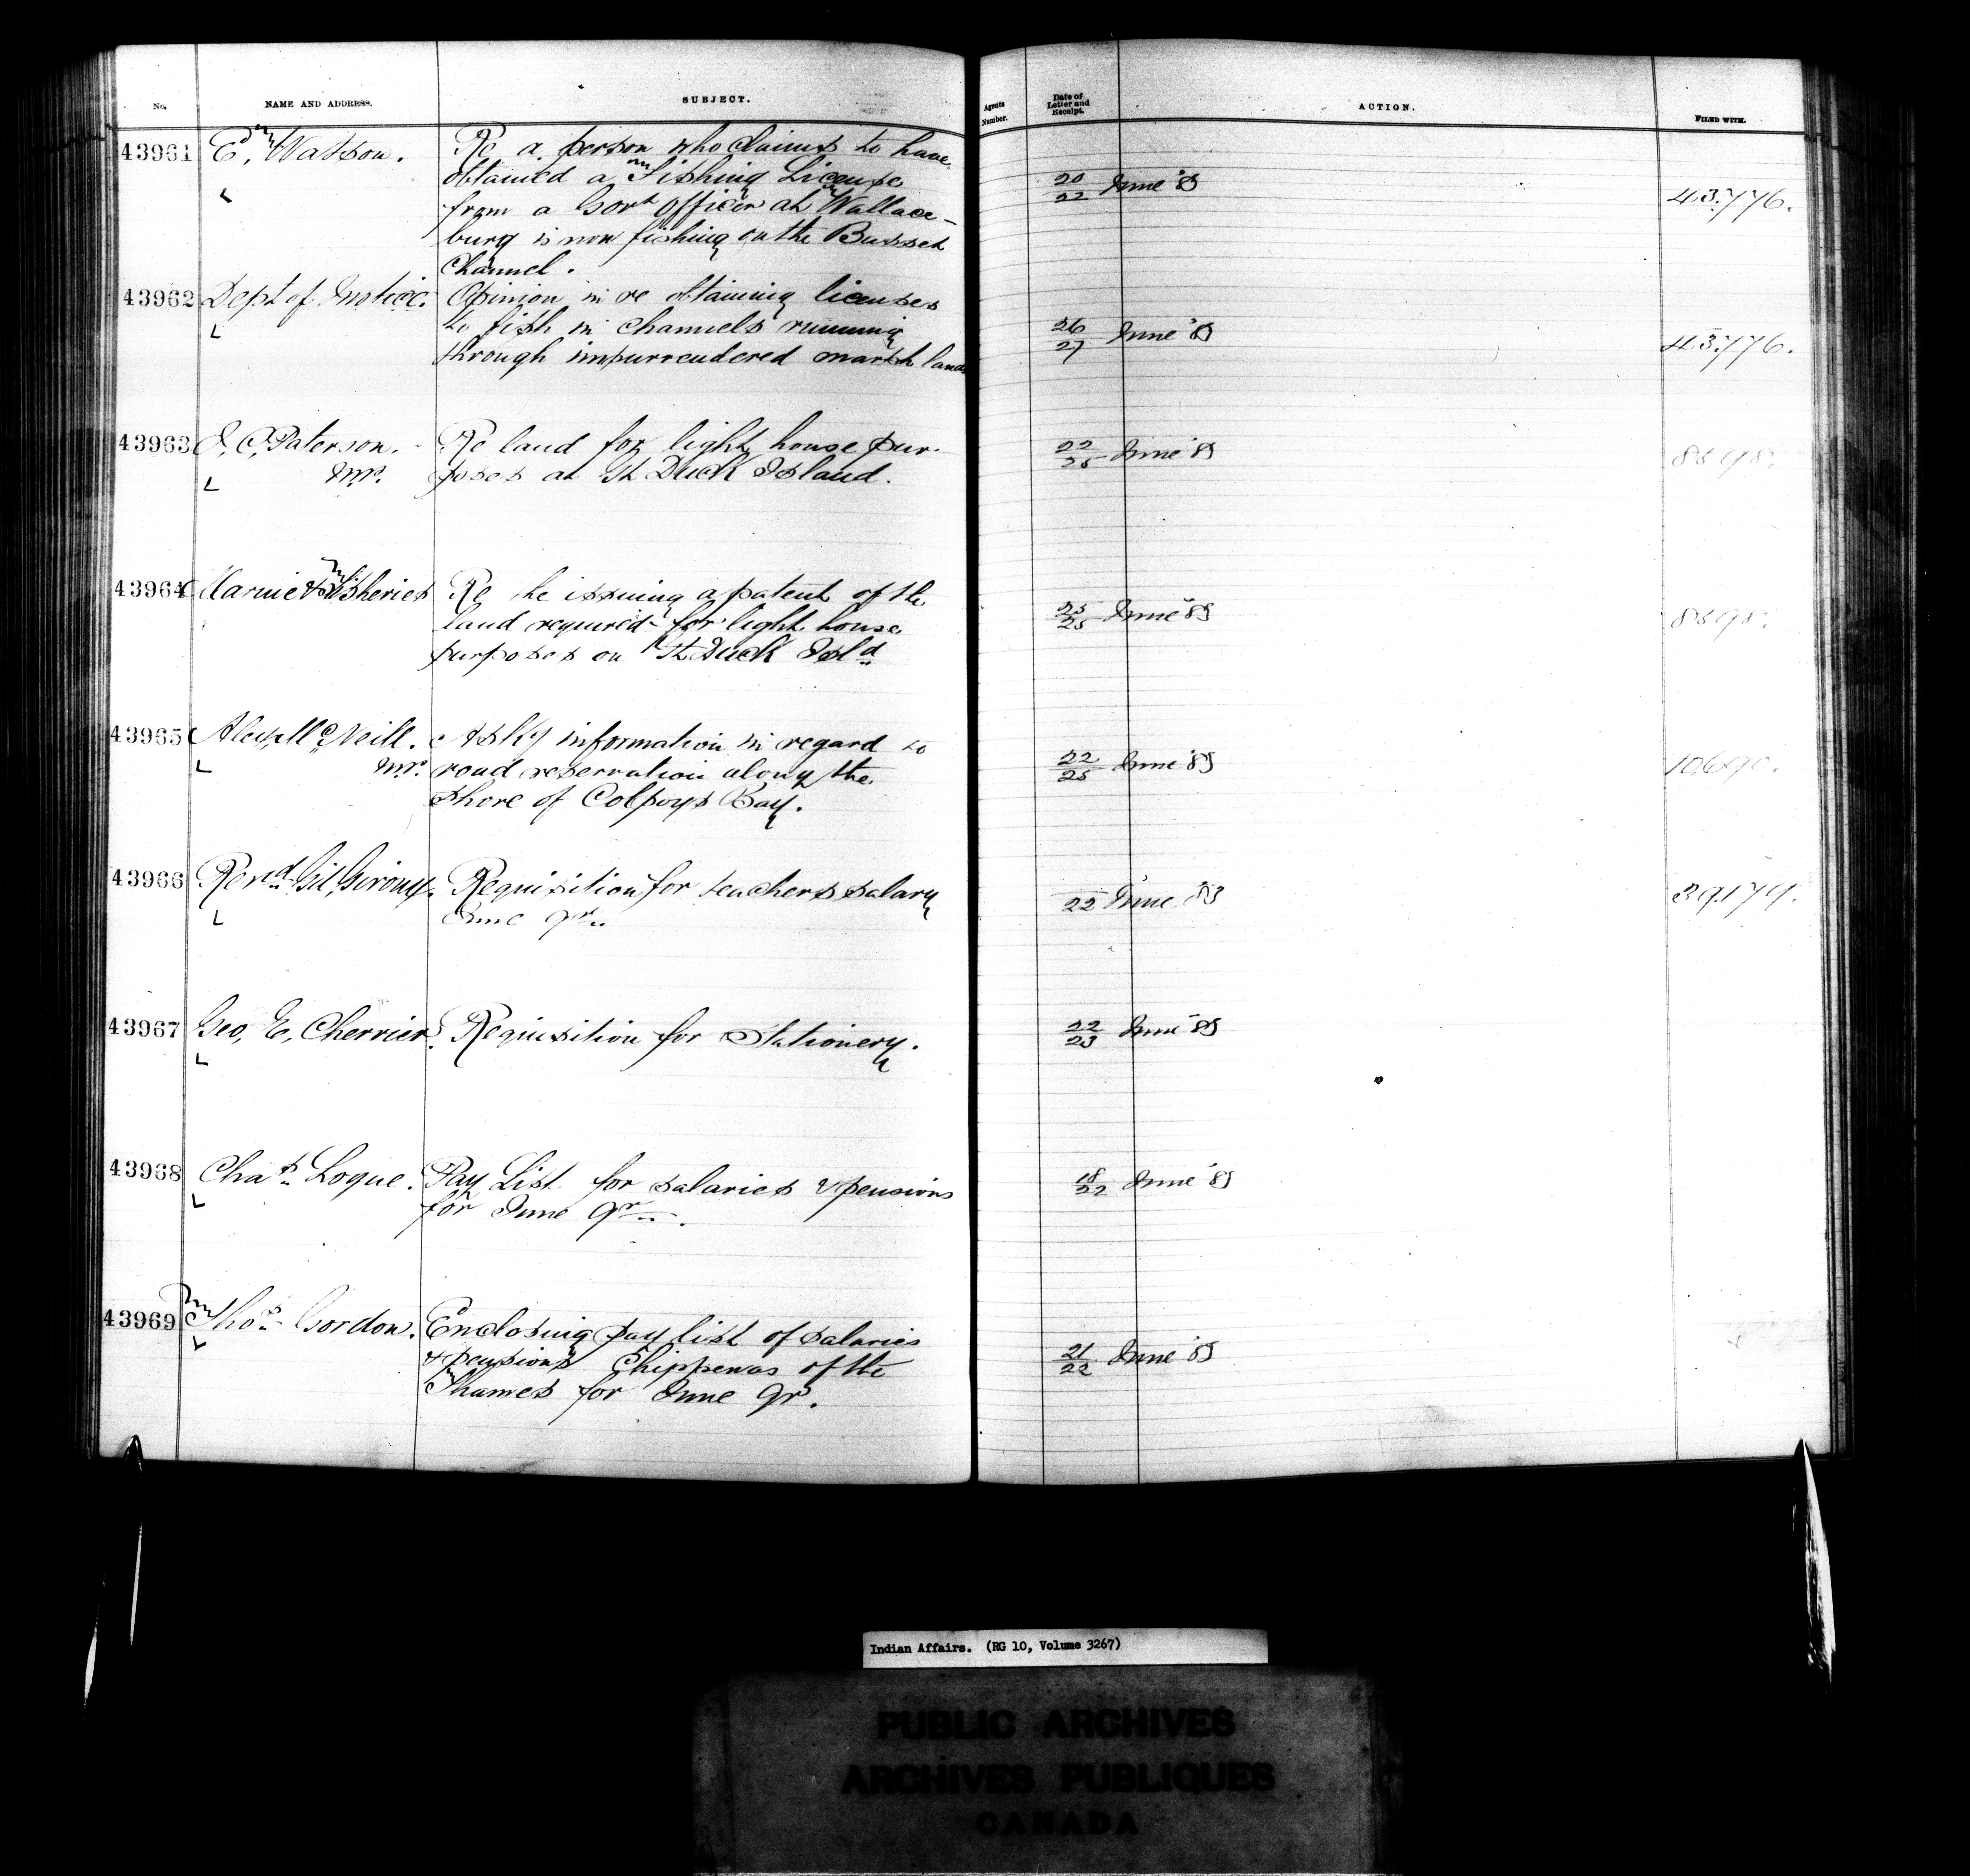 No.
NAME AND ADDRESS.
SUBJECT.
Agents Number.
Date of Letter and Receipt.
ACTION.
FILED WITH.
43961
Ed. Watson.
Re a person who claims to have
obtained a Fishing License
from a Govt Officer at Wallace-
burg is now fishing on the Basset
Channel.
20/22 June '83
43,776.
43962
Dept of Justice.
Opinion in re obtaining licenses
to fish in channels running
through unsurrendered marsh land
26/27 June '83
43,776.
43963
J. C. Paterson.
M.P.
Re land for light house pur-
poses at Gt Duck Island.
22/25 June '83
8598.
43964
Marine & Fisheries
Re the issuing a patent of the
land required for light house
purposes on Gt Duck Isld
23/25 June '83
8598.
43965
Alex McNeill.
M.P.
Asks information in regard to
road reservation along the
shore of Colpoys Bay.
22/25 June '83
10,690.
43966
Revd Gil. Giroux.
Requisition for teachers salary
June qr.
22 June '83
39,179.
43967
Geo. E. Cherrier.
Requisition for Stationery.
22/23 June '83
43968
Chas Logue.
Pay List for salaries & pensions
for June qr.
18/22 June '83
43969
Thos Gordon.
Enclosing pay list of salaries
& pensions Chippewas of the
Thames for June qr.
21/22 June '83
Indian Affairs. (RG 10, Volume 3267)
PUBLIC ARCHIVES
ARCHIVES PUBLIQUES
CANADA